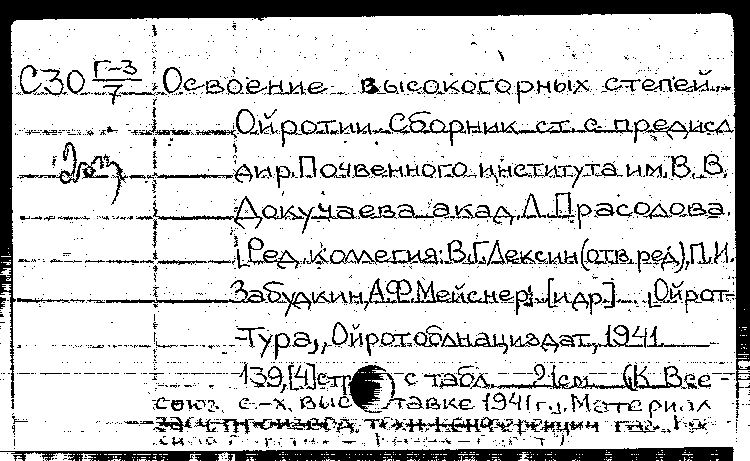 С30 Г-3/7 Освоение высокогорных степей.
Ойротии. Сборник ст. с предисл
дир. Почвенного института им. В. В.
Докучаева акад. Л. Прасолова.
[Ред. коллегия: В. Г. Лексин (отв. ред), П. И.
Забудкин, А. Ф. Мейснер, [и др.] [Ойрот-
Тура], Ойротоблнациздат, 1941.
139, [4] стр. с табл. 21 см. (К Все-
союз. с.-х. выставке 1941 г.). Материал
конференции